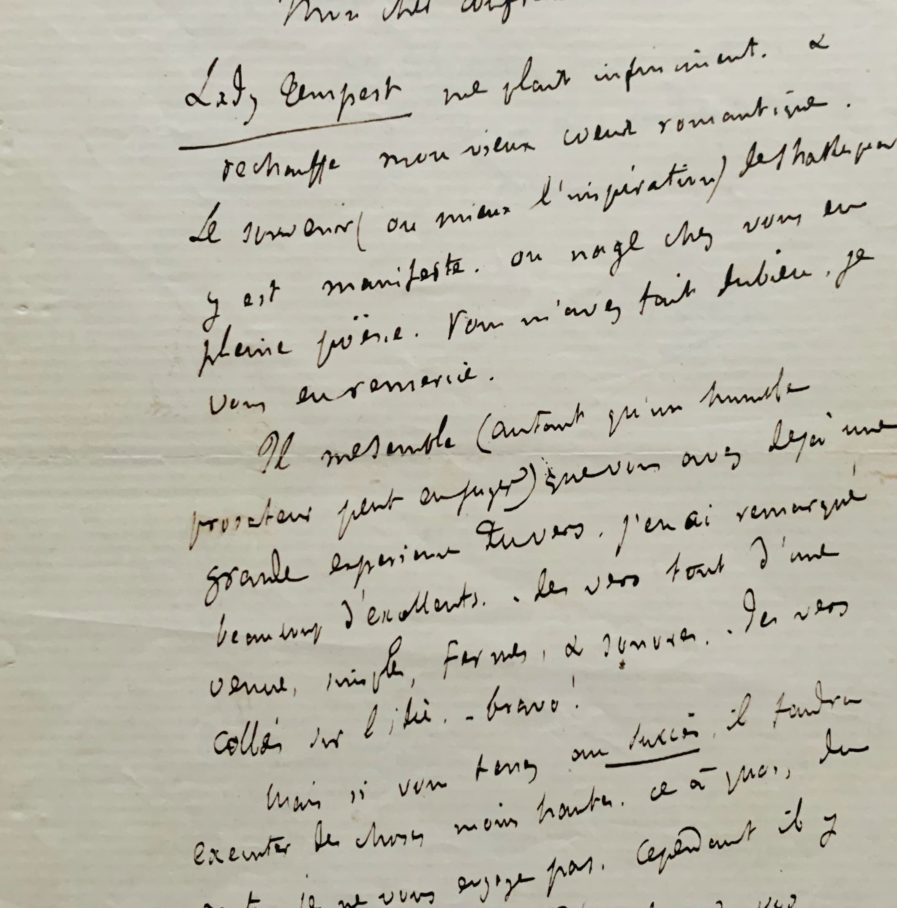 Mon cher confrère
Lady Tempest me plait infiniment. &
rechauffe mon vieux coeur romantique.
Le souvenir (ou mieux l'inspiration) de Shakespear
y est manifeste. on nage chez vous en
pleine poësie. Vous m'avez fait du bien. je
vous en remercie.
Il me semble (autant qu'un humble
prosateur peut en juger) que vous avez dejà une
grande experience du vers. j'en ai remarqué
beaucoup d'excellents. - des vers tout d'une
venue, simples, fermes, & sonores. - des vers
collés sur l'idée. - bravo!
Mais si vous tenez au succès, il faudra
executer des choses moins hautes. ce à quoi, du
reste, je ne vous engage pas. cependant il y